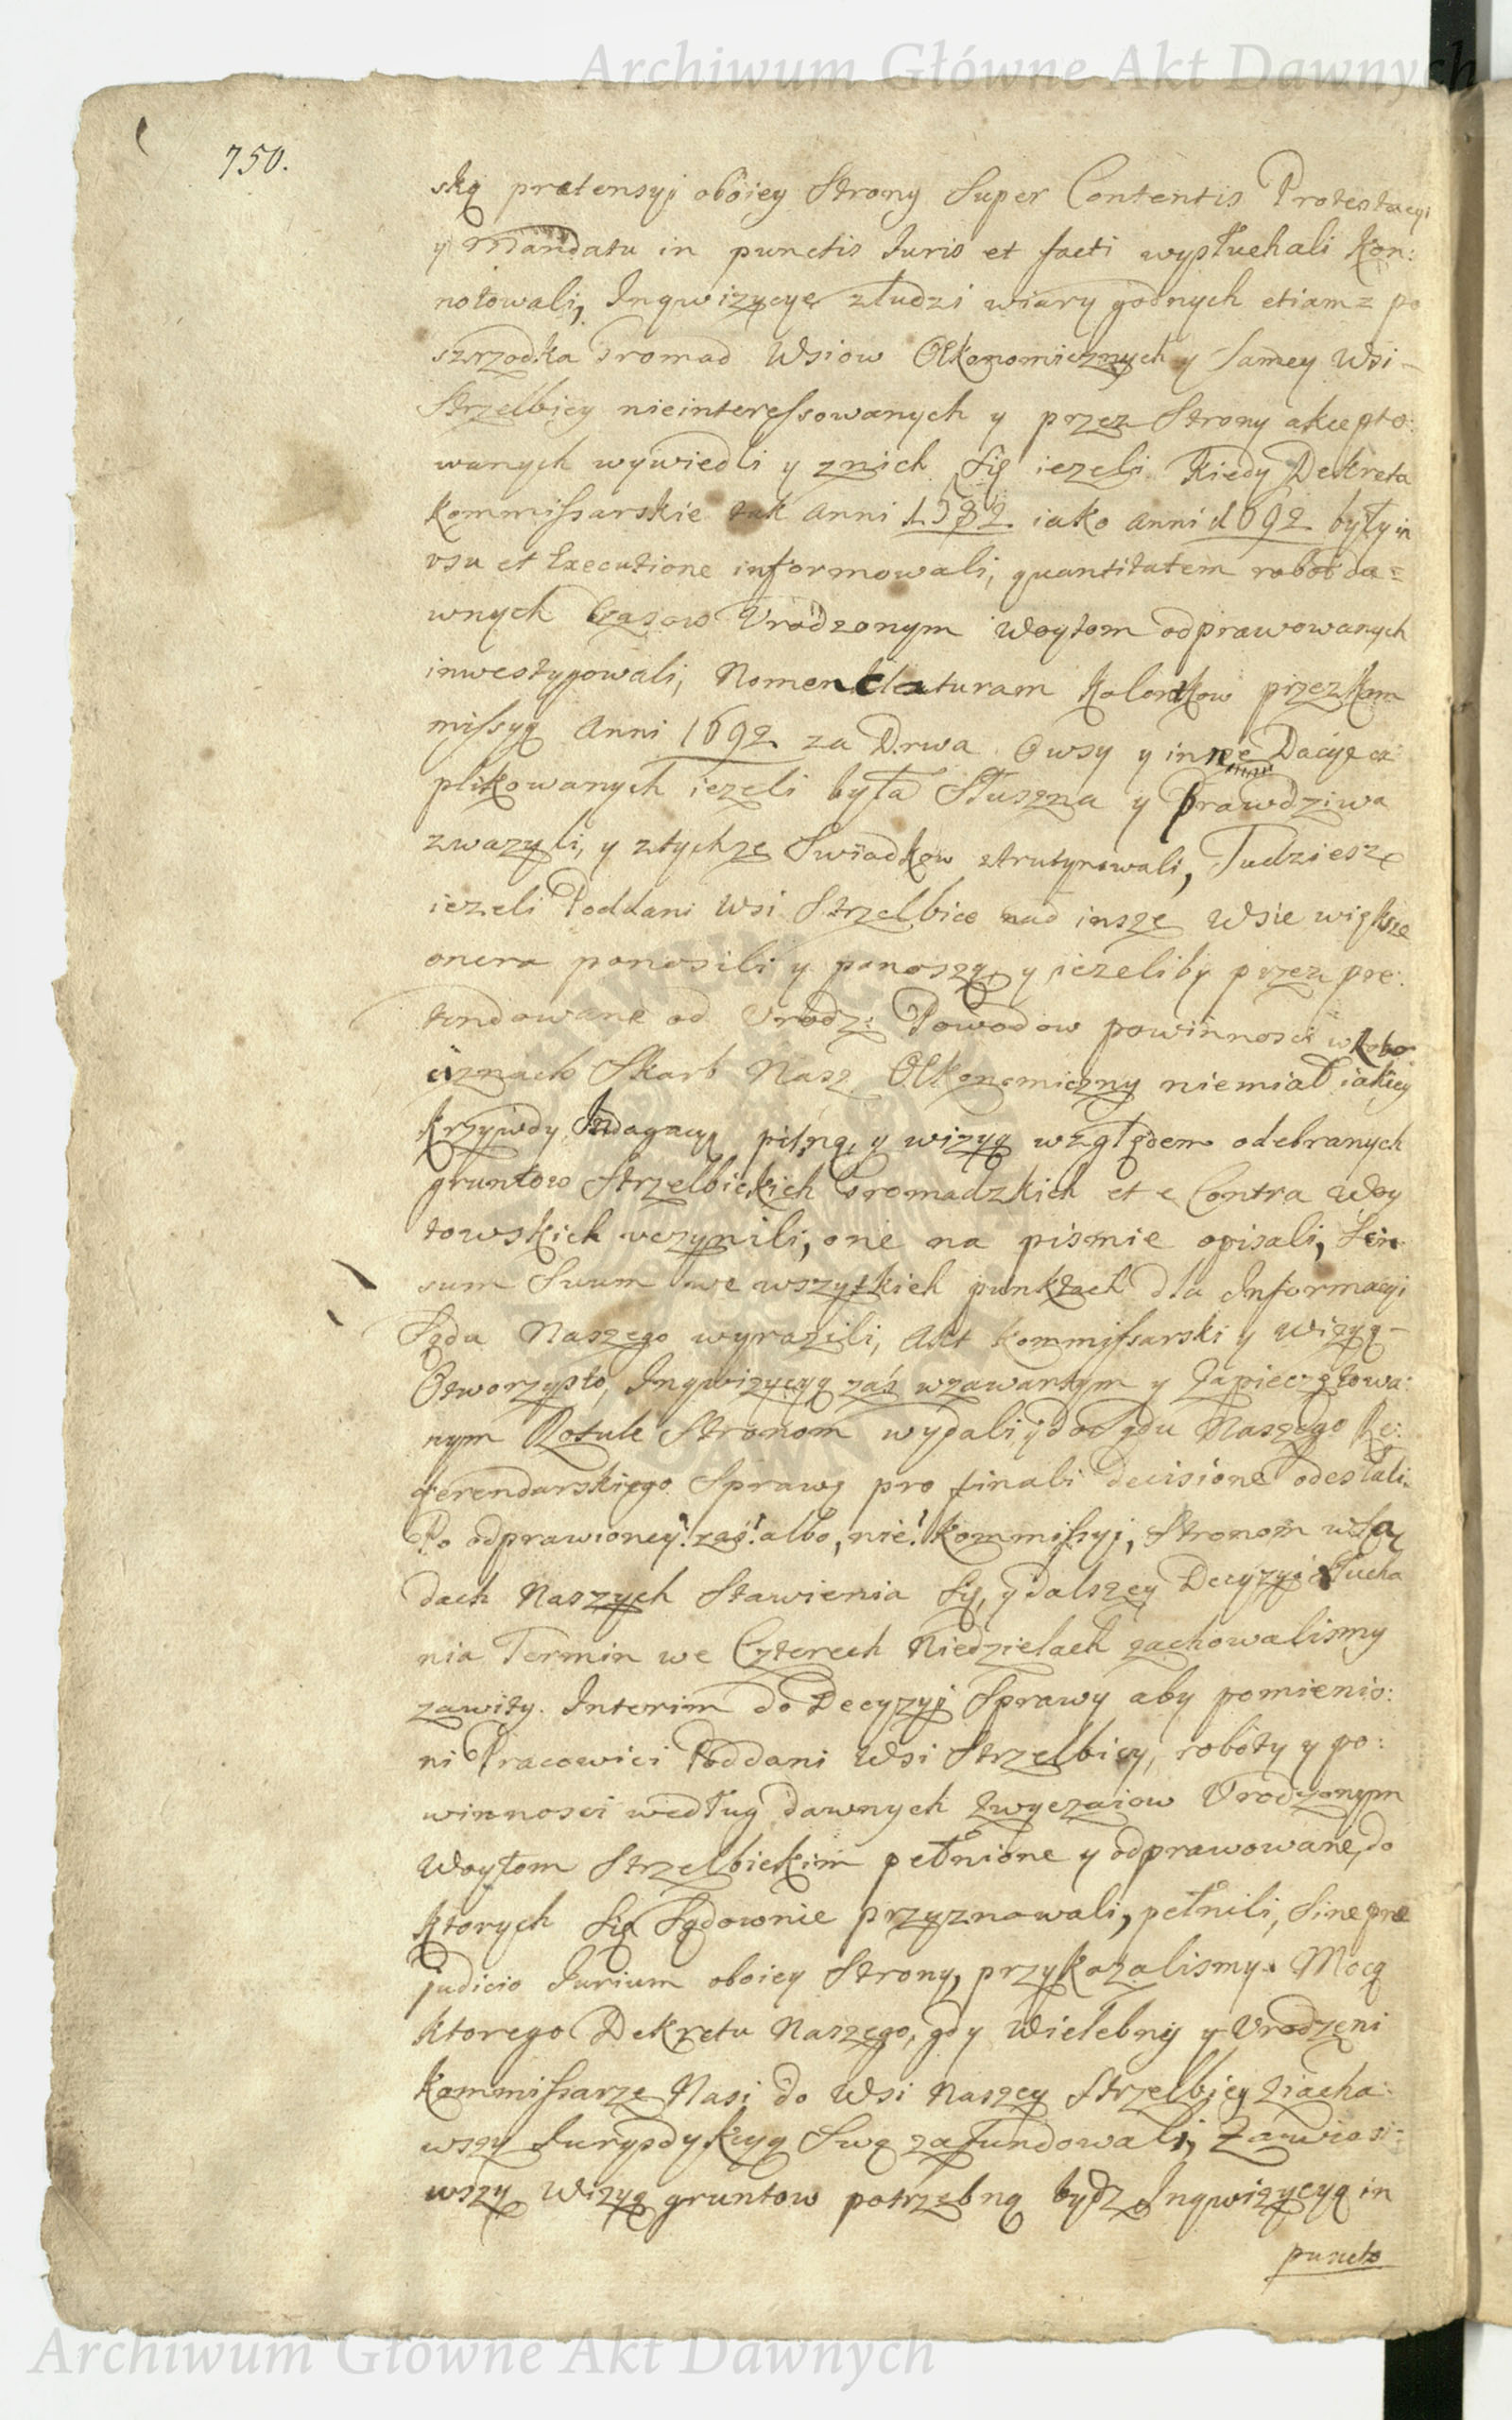 Archiwum Główne Akt Dawnych
750.
ską pretensyi oboiey Strony Super Contentis Protestacyi
y Mandatu in punctis Iuris et facti wysłuchali kon:
notowali, Inqwizycyę zludzi wiary godnych etiam z po
szrzodka Gromad Wsiow Oekonomicznych y Samey Wsi
Strzelbicy nieinteressowanych y przez Strony akcepto:
wanych wywiedli y znich Się iezeli kiedy Dekreta
kommissarskie tak Anni 1582 iako Anni 1692 były in
vsu et Executione informowali, quantitatem robot da=
wnych Czasow Vrodzonym Woytom odprawowanych
inwestygowali, Nomenklaturam kolonkow przez kom
missyą Anni 1692 za Drwa Owsy y inne Dacye ex
plikowanych iezeli była Słuszna y Prawdziwa
zwazyli, y ztychze Swiadkow strutynowali, Tudziesz
iezeli Poddani Wsi Strzelbice nad insze Wsie większe
onera ponosili y ponoszą, y iezeliby przez pre:
tendowane od Vrodz: Powodow powinnosci w Robo
ciznach Skarb Nasz Oekonomiczny niemiał iakiey
krzywdy, Indagacyą pilną, y wizyą względem odebranych
gruntow Strzelbickich Gromadzkich et e Contra Woy
towskich uczynili, one na pismie opisali, Sen
sum Suum we wszytkich punktach dla Informacyi
Sądu Naszego wyrazili, Akt kommissarski y wizyą
Otworzysto, Inqwizycyą zaś wzawartym y Zapieczętowa:
nym Rotule Stronom wydali, y do Sądu Naszego Re:
ferendarskiego Sprawę pro finali decisione odesłali.
Po odprawioney zaś albo, nie kommissyi, Stronom w Są
dach Naszych Stawienia Się, y dalszey Decyzyi Słucha
nia Termin we Czterech Niedzielach zachowalismy
zawity. Interim do Decyzyi Sprawy aby pomienio:
ni Pracowici Poddani Wsi Strzelbicy, roboty y po:
winnosci według dawnych Zwyczaiow Vrodzonym
Woytom Strzelbickim pełnione y odprawowane, do
ktorych Się Sądownie przyznawali, pełnili, Sine pre
judicio Iurium oboiey Strony, przykazalismy. Mocą
ktorego Dekretu Naszego, gdy Wielebny y Vrodzeni
kommissarze Nasi do Wsi Naszey Strzelbicy Ziacha:
wszy Iurysdykcyą Swą zafundowali, Zawiesi=
wszy Wizyą gruntow potrzebną bydz, Inqwizycyą in
puncto
Archiwum Główne Akt Dawnych